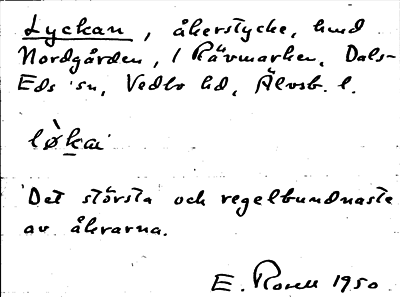 Lyckan, åkerstycke, hmd
Nordgården, 1 Rävmarken, Dals-
Eds sn, Vedbo hd, Älvsb. l.
Det största och regelbundnaste
av åkrarna.
E. Rosell 1950